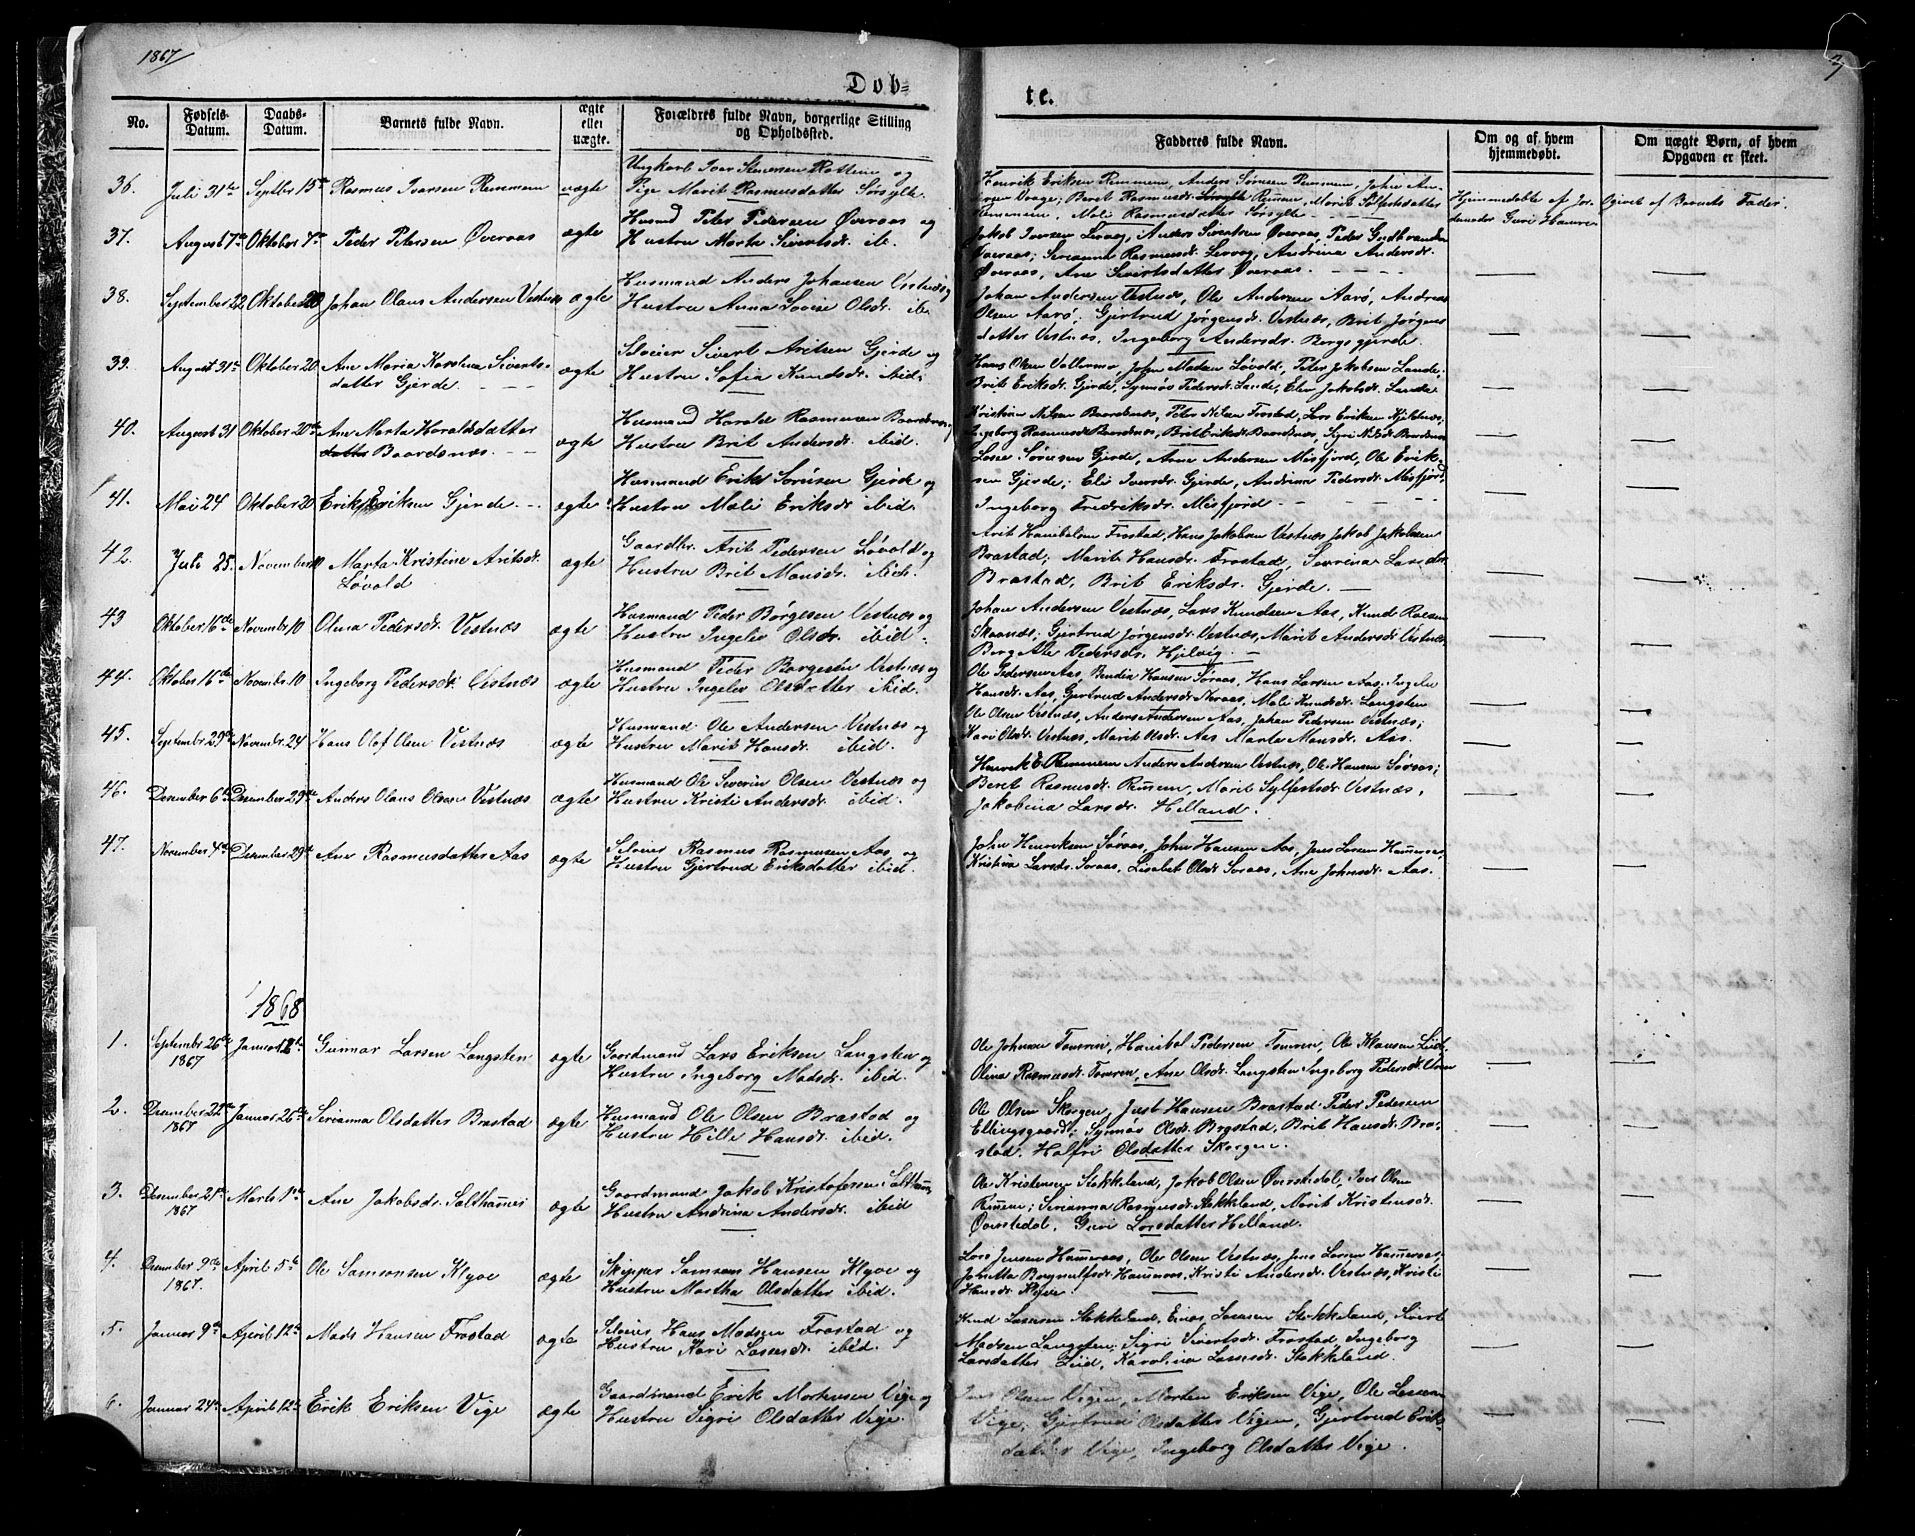 1867
3
Døb=
te.
No.
Fødsels-
Datum.
Daabs-
Datum.
Barnets fulde Navn.
ægte
eller
uægte.
Forældres fulde Navn, borgerlige Stilling
og Opholdssted.
Fadderes fulde Navn.
Om og af hvem
hjemmedøbt.
Om uægte Børn, af hvem
Opgaven er skeet.
36. Juli 31te Septbr 15de Rasmus Iversen Remmem uægte
Ungkarl Iver Stenersen Rottem og
Pige Marit Rasmusdatter Sørsylte.
Henrik Eriksen Remmem, Anders Sørensen Remmem, John An-
dersen Vaage; Beret Rasmusdr. Sørsylte Remem, Marit Sylfestsdatter
Remmem, Mali Rasmusdatter Sørsylte.
Hjemmedøbt af Jor-
demoder Guri Hamre
Opgivet af Barnets Fader.
37. August 7de Oktober 4de Peder Petersen Øveraas ægte
Husmd Peter Pedersen Øveraas og
Hustru Marta Sivertsdr. ib.
Jakob Iversen Lervog, Anders Sivertsen Øveraas, Peder Gudbrandsen
Øveraas; Serianna Rasmusdr. Lervog, Andrina Andersdr.
Øveraas, Ane Sivertsdatter Øveraas.
38. September 22 Oktober 20 Johan Olaus Andersen Vestnæs ægte
Husmand Anders Johansen Vestnæs og
Hustru Anna Lovise Olsdr. ib.
Johan Andersen Vestnæs, Ole Andersen Aarø, Andreas
Olsen Aarø. Gjertrud Jørgensdr. Vestnæs, Brit Jørgens
datter Vestnæs, Ingeborg Andersdr. Bergsgjerde.
39. August 31te Oktober 20 Ane Maria Karolina Siverts-
datter Gjerde. ægte
Selveier Sivert Aritsen Gjerde og
Hustru Sofia Knudsdr. ibid.
Hans Olsen Vollermo, John Madsen Løvold, Peter Jakobsen Lande.
Brit Eriksdr. Gjerde, Synnøv Pedersdr. Lande, Elen Jakobsdr. Lande
40. August 31 Oktober 20de Ane Marta Haraldsdatter
datter Baardsnæs. ægte
Husmand Harald Rasmussen Baardsnæs og
Hustru Brit Andersdr. ibid.
Kristian Nilsen Baardsnæs, Peter Nilsen Frostad, Lars Eriksen Kjelsnæs,
Ingeborg Rasmusdr. Baardsnæs, Brit Eriksdr. Baardsnæs, Sigri Nilsdr. Baardsnæs
41. Mai 24 Oktober 20 Erik Eriksen Gjerde. ægte
Husmand Erik Sørensen Gjerde og
Hustru Mali Eriksdr. ibid.
Lasse Sørensen Gjerde, Arne Andersen Misfjord, Ole Erik-
sen Gjerde; Eli Iversdr. Gjerde, Andrina Pedersdr. Misfjord,
Ingeborg Fredriksdr. Misfjord
42. Juli 25. November 10 Marta Kristine Aritsdr.
Løvold ægte
Gaardbr. Arit Pedersen Løvold og
Hustru Brit Monsdr. ibid.
Arit Hanibalsen Frostad, Hans Jakobsen Vestnæs, Jakob Jakobsen
Brastad; Marit Hansdr. Frostad, Severina Larsdr.
Brastad, Brit Eriksdr. Gjerde.
43 Oktober 16de November 10 Olina Pedersdr. Vestnæs ægte
Husmand Peder Børgesen Vestnæs og
Hustru Ingeliv Olsdr. ibid.
Johan Andersen Vestnæs, Lars Knudsen Aas, Knud Roesen
Skaanæs; Gjertrud Jørgensdr. Vestnæs, Marit Andersdr Vestnæs,
Berg Ale Pedersdr. Hjelvig.
44. Oktober 16de Novembr. 10 Ingeborg Pedersdr. Vestnæs ægte
Husmand Peder Børgesen Vestnæs og
Hustru Ingeliv Olsdatter ibid.
Ole Pedersen Aas, Hans Larsen Aas. Ingeliv
Hansdr. Aas, Gjertrud Andersdr. Neraas, Mali Knudsdr. Langsten
45. Septembr. 29de Novembr. 24 Hans Olof Olsen Vestnæs ægte
Husmand Ole Andersen Vestnæs og
Hustru Marit Hansdr. ibid.
Ole Olsen Vestnæs, Anders Andersen Aas, Johan Petersen Vestnæs;
Kari Olsdr. Vestnæs, Marit Olsdr. Aas Marta Monsdr. Aas.
46. Desember 6te Desember 29de Anders Olaus Olsen Vestnæs ægte
Husmand Ole Severin Olsen Vestnæs og
Hustru Kristi Andersdr. ibid.
Henrik E. Remmem Anders Andersen Vestnæs, Ole Hansen Søraas;
Beret Rasmusdr. Remem, Marit Sylfestsdr. Vestnæs,
Jakobina Larsdr. Helland.
47. November 4de Desember 29de Ane Rasmusdatter Aas ægte
Selveier Rasmus Rasmusen Aas og
Hustru Gjertrud Eriksdatter ibid.
John Henriksen Søraas, John Hansen Aas, Jens Larsen Hameraas,
Kristina Larsdr. Søraas, Lisabet Olsdr. Søraas, Ane Johnsdr. Aas.
1868
1. Septembr. 26de
1867 Januar 12te Gunnar Larsen Langsten ægte
Gaardmand Lars Eriksen Langsten og
Hustru Ingeborg Madsdr. ibid.
Ole Johnsen Tomren, Hanibal Pedersen Tomren, Ole Klausen Eid;
Olina Rasmusdr. Tomren, Ane Olsdr. Langsten Ingeborg Pedersdr.
2. Desember 22de
1867 Januar 26de Serianna Olsdatter Brastad ægte
Husmand Ole Olsen Brastad og
Hustru Hille Hansdr. ibid.
Ole Olsen Skorgen, Just Hansen Brastad, Peder Pedersen
Ellingsgaard; Synnøv Olsdr. Brastad, Brit Hansdr. Bra-
stad. Halfri Olsdatter Skorgen.
3. Desember 21de
1867 Marts 1ste Ane Jakobsdr. Salthamer ægte
Gaardmand Jakob Kristofersen Salthamer
Hustru Andrina Andersdr. ibid
Ole Kristensen Stokkeland, Jakob Olsen Øverstedal, Iver Olsen
Remem; Serianna Rasmusdr. Stokkeland, Marit Kristensdr.
Øverstedal, Guri Larsdatter Helland.
4. Desember 9de
1867. April 5te Ole Samsonsen Klyve ægte
Skipper Samson Hansen Klyve og
Hustru Martha Olsdatter ibid.
Lars Jensen Hameraas, Ole Olsen Vestnæs, Jens Larsen Hameraas.
Johetta Bergnulfsdr. Hameraas, Kristi Andersdr. Vestnæs, Kristi
Hansdr. Klyve.
5. Januar 9de April 12te Mads Hansen Frostad ægte
Selveier Hans Madsen Frostad og
Hustru Kari Lassesdr. ibid.
Knud Lassesen Stokkeland, Einar Lassesen Stokkeland, Sivert
Madsen Langsten; Sigri Sivertsdr. Frostad, Ingeborg
Larsdatter Eid, Karolina Lassesdr. Stokkeland.
6. Januar 24de April 12te Erik Eriksen Vige ægte
Gaardmand Erik Mortensen Vige og
Hustru Sigri Olsdatter Vige.
Olsen Vigen, Morten Eriksen Vige, Ole Lassen
Vige, Gjertrud Olsdatter Vigen, Gjertrud Erik-
datter Vige, Ingeborg Olsdatter Vige.